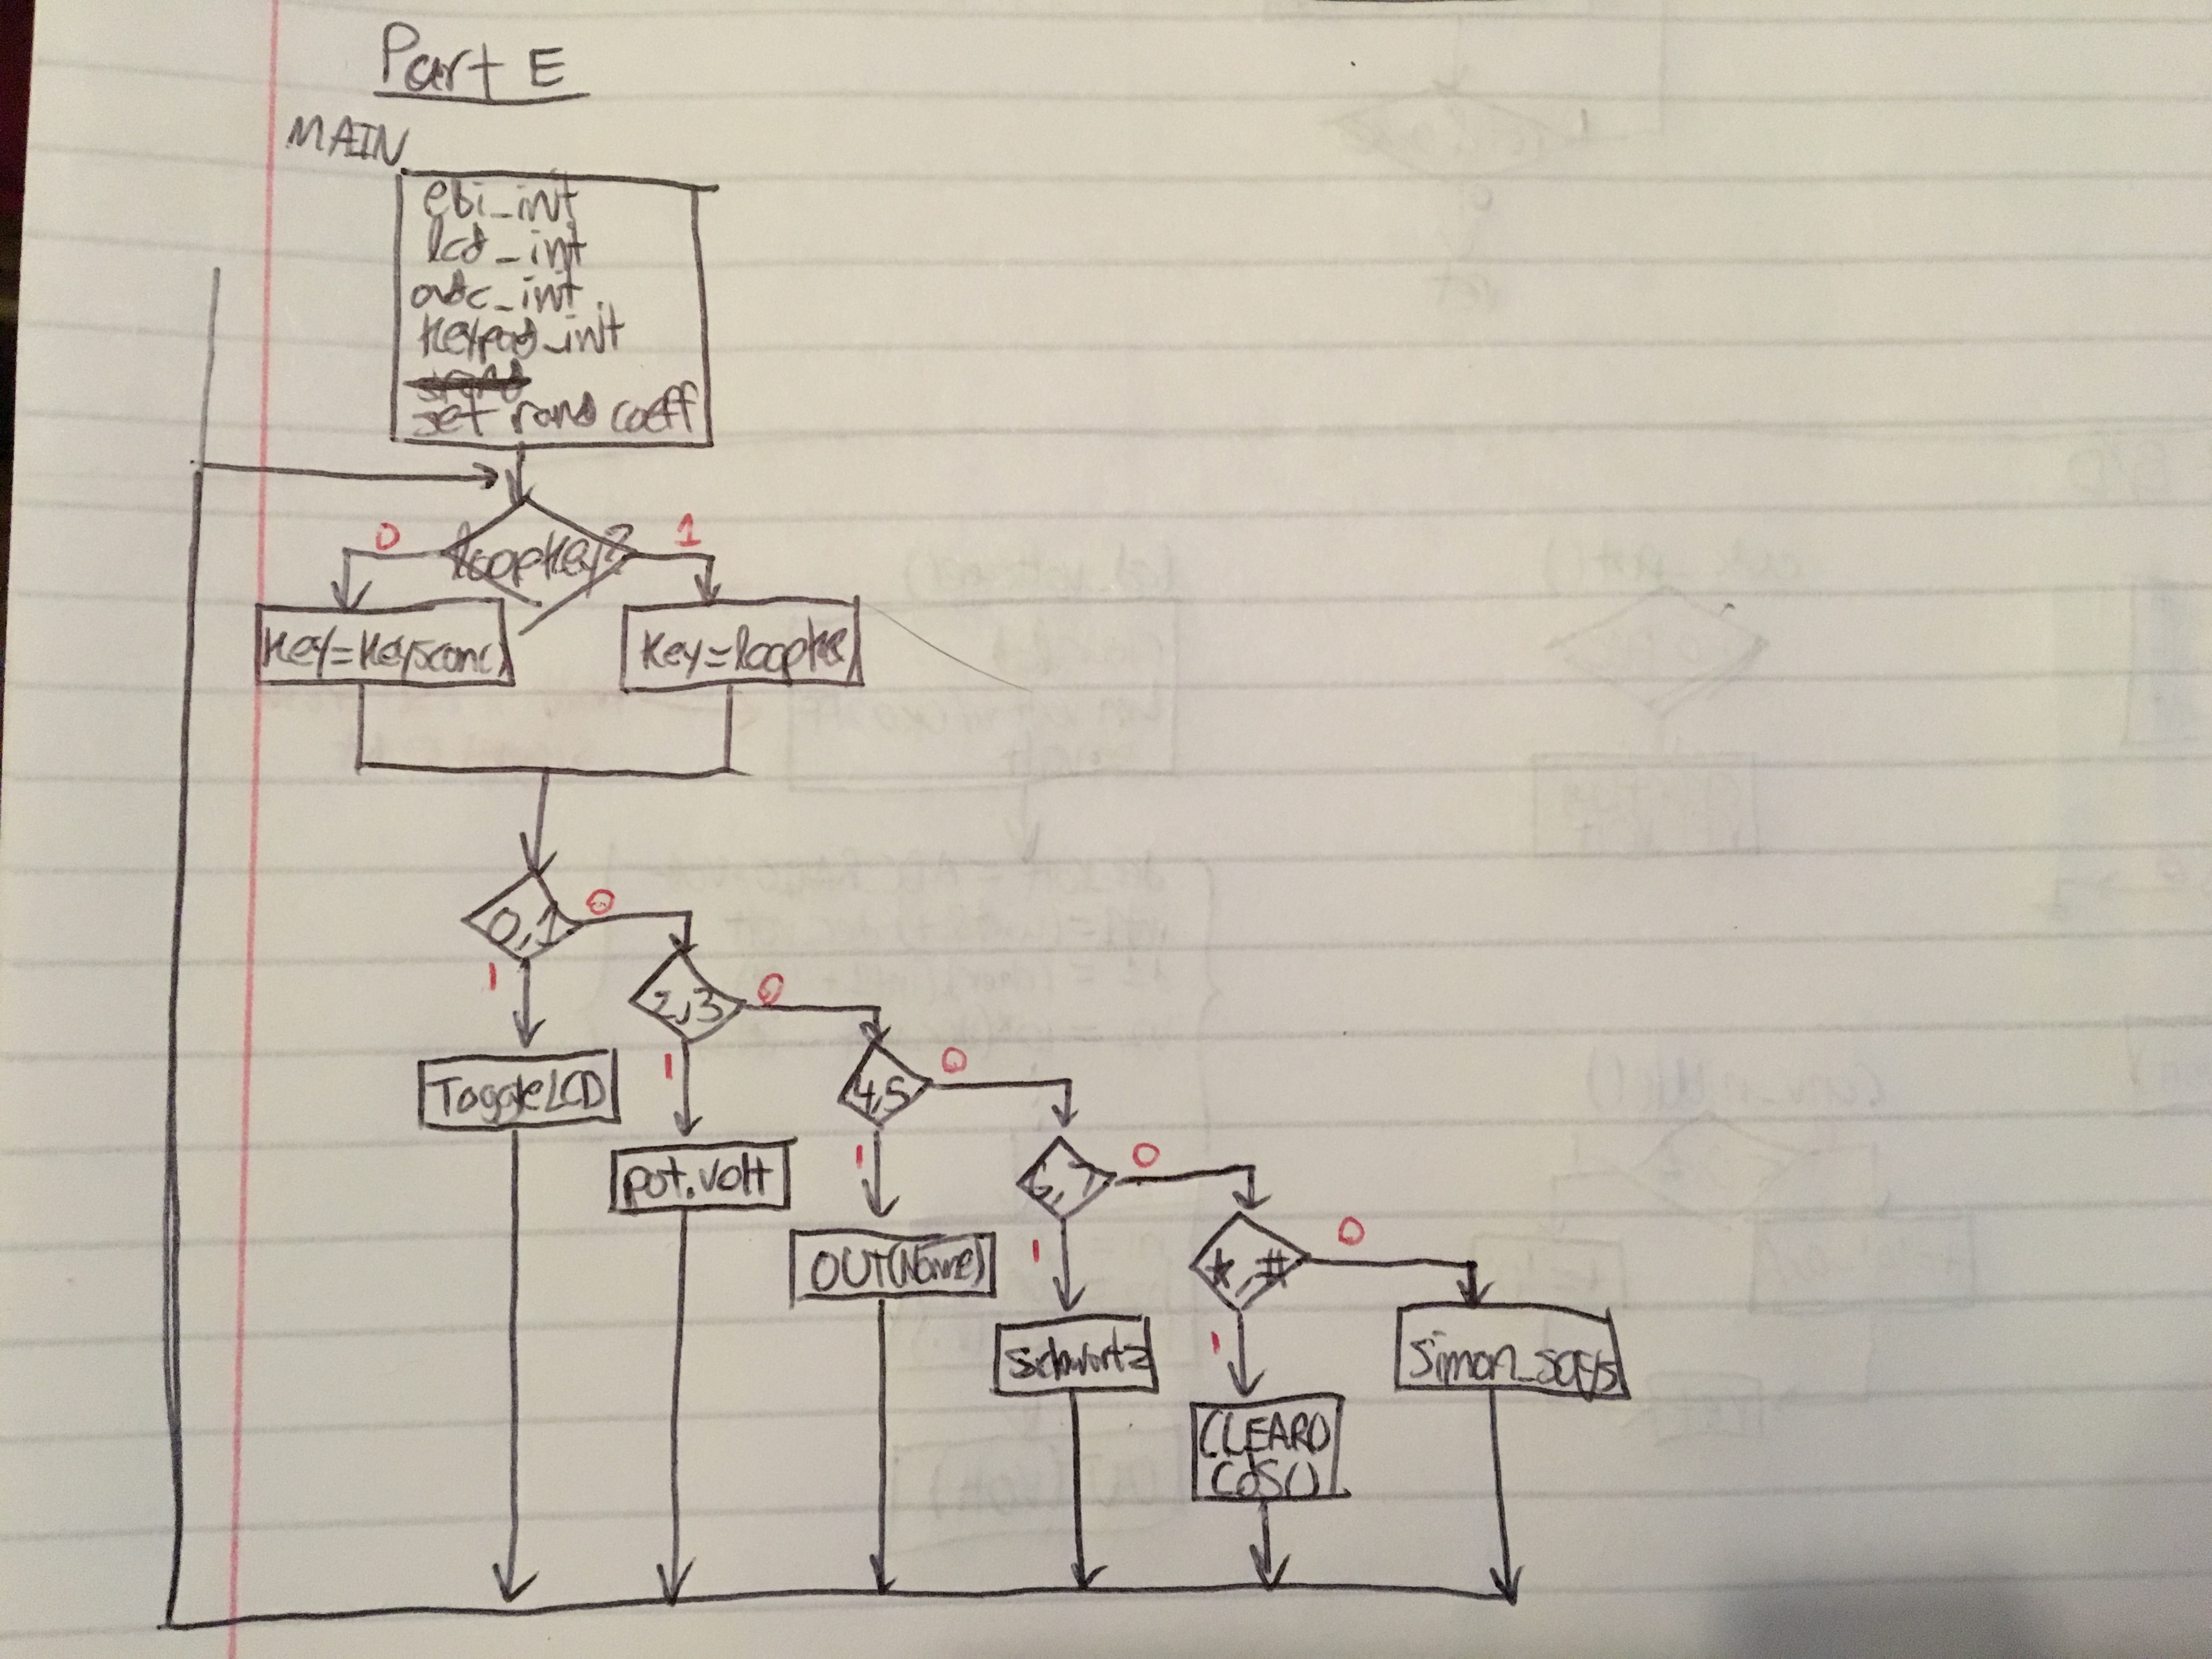 Part E
MAIN
ebi_init
lcd_init
adc_init
Keypad_init
set rand coeff
loopKey?
0
1
Key=Keyscan()
Key=loopKey
0,1
0
1
ToggleLCD
2,3
0
1
pot.volt
4,5
0
1
OUT(Name)
6,7
0
1
Schwartz
*,#
0
1
CLEAR()
CdS()